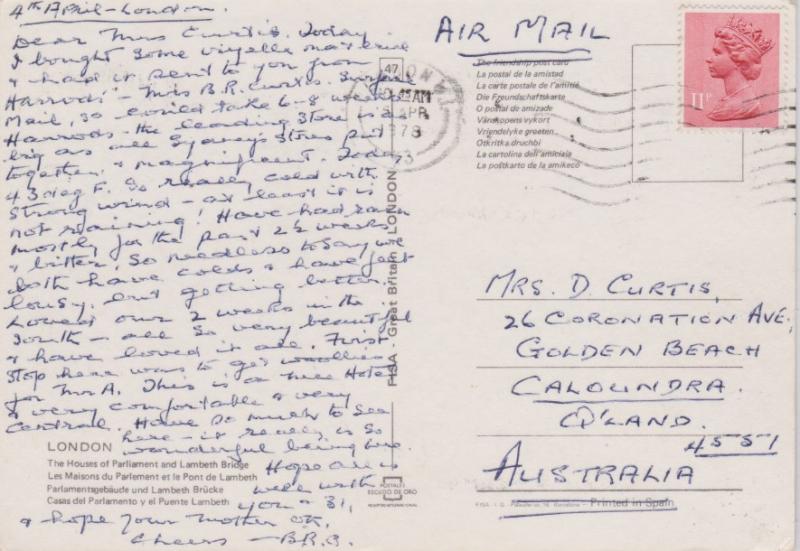 4th April - London.
Dear Mrs Curtis. Today
I bought some viyella material
& had it sent to you from
Harrods - Mrs B.R. Curtis. Surface
Mail, so could take 6-8 weeks.
Harrods - the leading store is as
big as all Sydney's stores put
together, & magnificent. Today
43 deg F. So really cold with
strong wind - at least it is
not raining! Have had rain
mostly for the past 2½ weeks
& bitter. So needless to say we
both have colds & have felt
lousy, but getting better.
Loved our 2 weeks in the
South - all so very beautiful
& have loved it all. First
stop here was to get woollies
for Mr A. This is a nice Hotel
& very comfortable & very
central. Have so much to see
here - it really is so
wonderful being here.
Hope all is
well with
you & 
& hope your mother ok.
Cheers - B.R.G.
LONDON
The Houses of Parliament and Lambeth Bridge
Les Maisons du Parlement et le Pont de Lambeth
Parlamentsgebäude und Lambeth Brücke
Casas del Parlamento y el Puente Lambeth
47
FISA - Great Britain - LONDON
POSTALES
ESCUDO DE ORO
AIR MAIL
The friendship post card
La postal de la amistad
La carte postale de l'amitié
Die Freundschaftskarte
O postal de amizade
Vänskapens vykort
Vriendelyke groeten
Otkritka druchbi
La cartolina dell'amicizia
La poŝtkarto de la amikeco
AM
APR
1978
11P
MRS. D. CURTIS,
26 CORONATION AVE,
GOLDEN BEACH
CALOUNDRA.
Q'LAND.
4551
AUSTRALIA
Printed in Spain